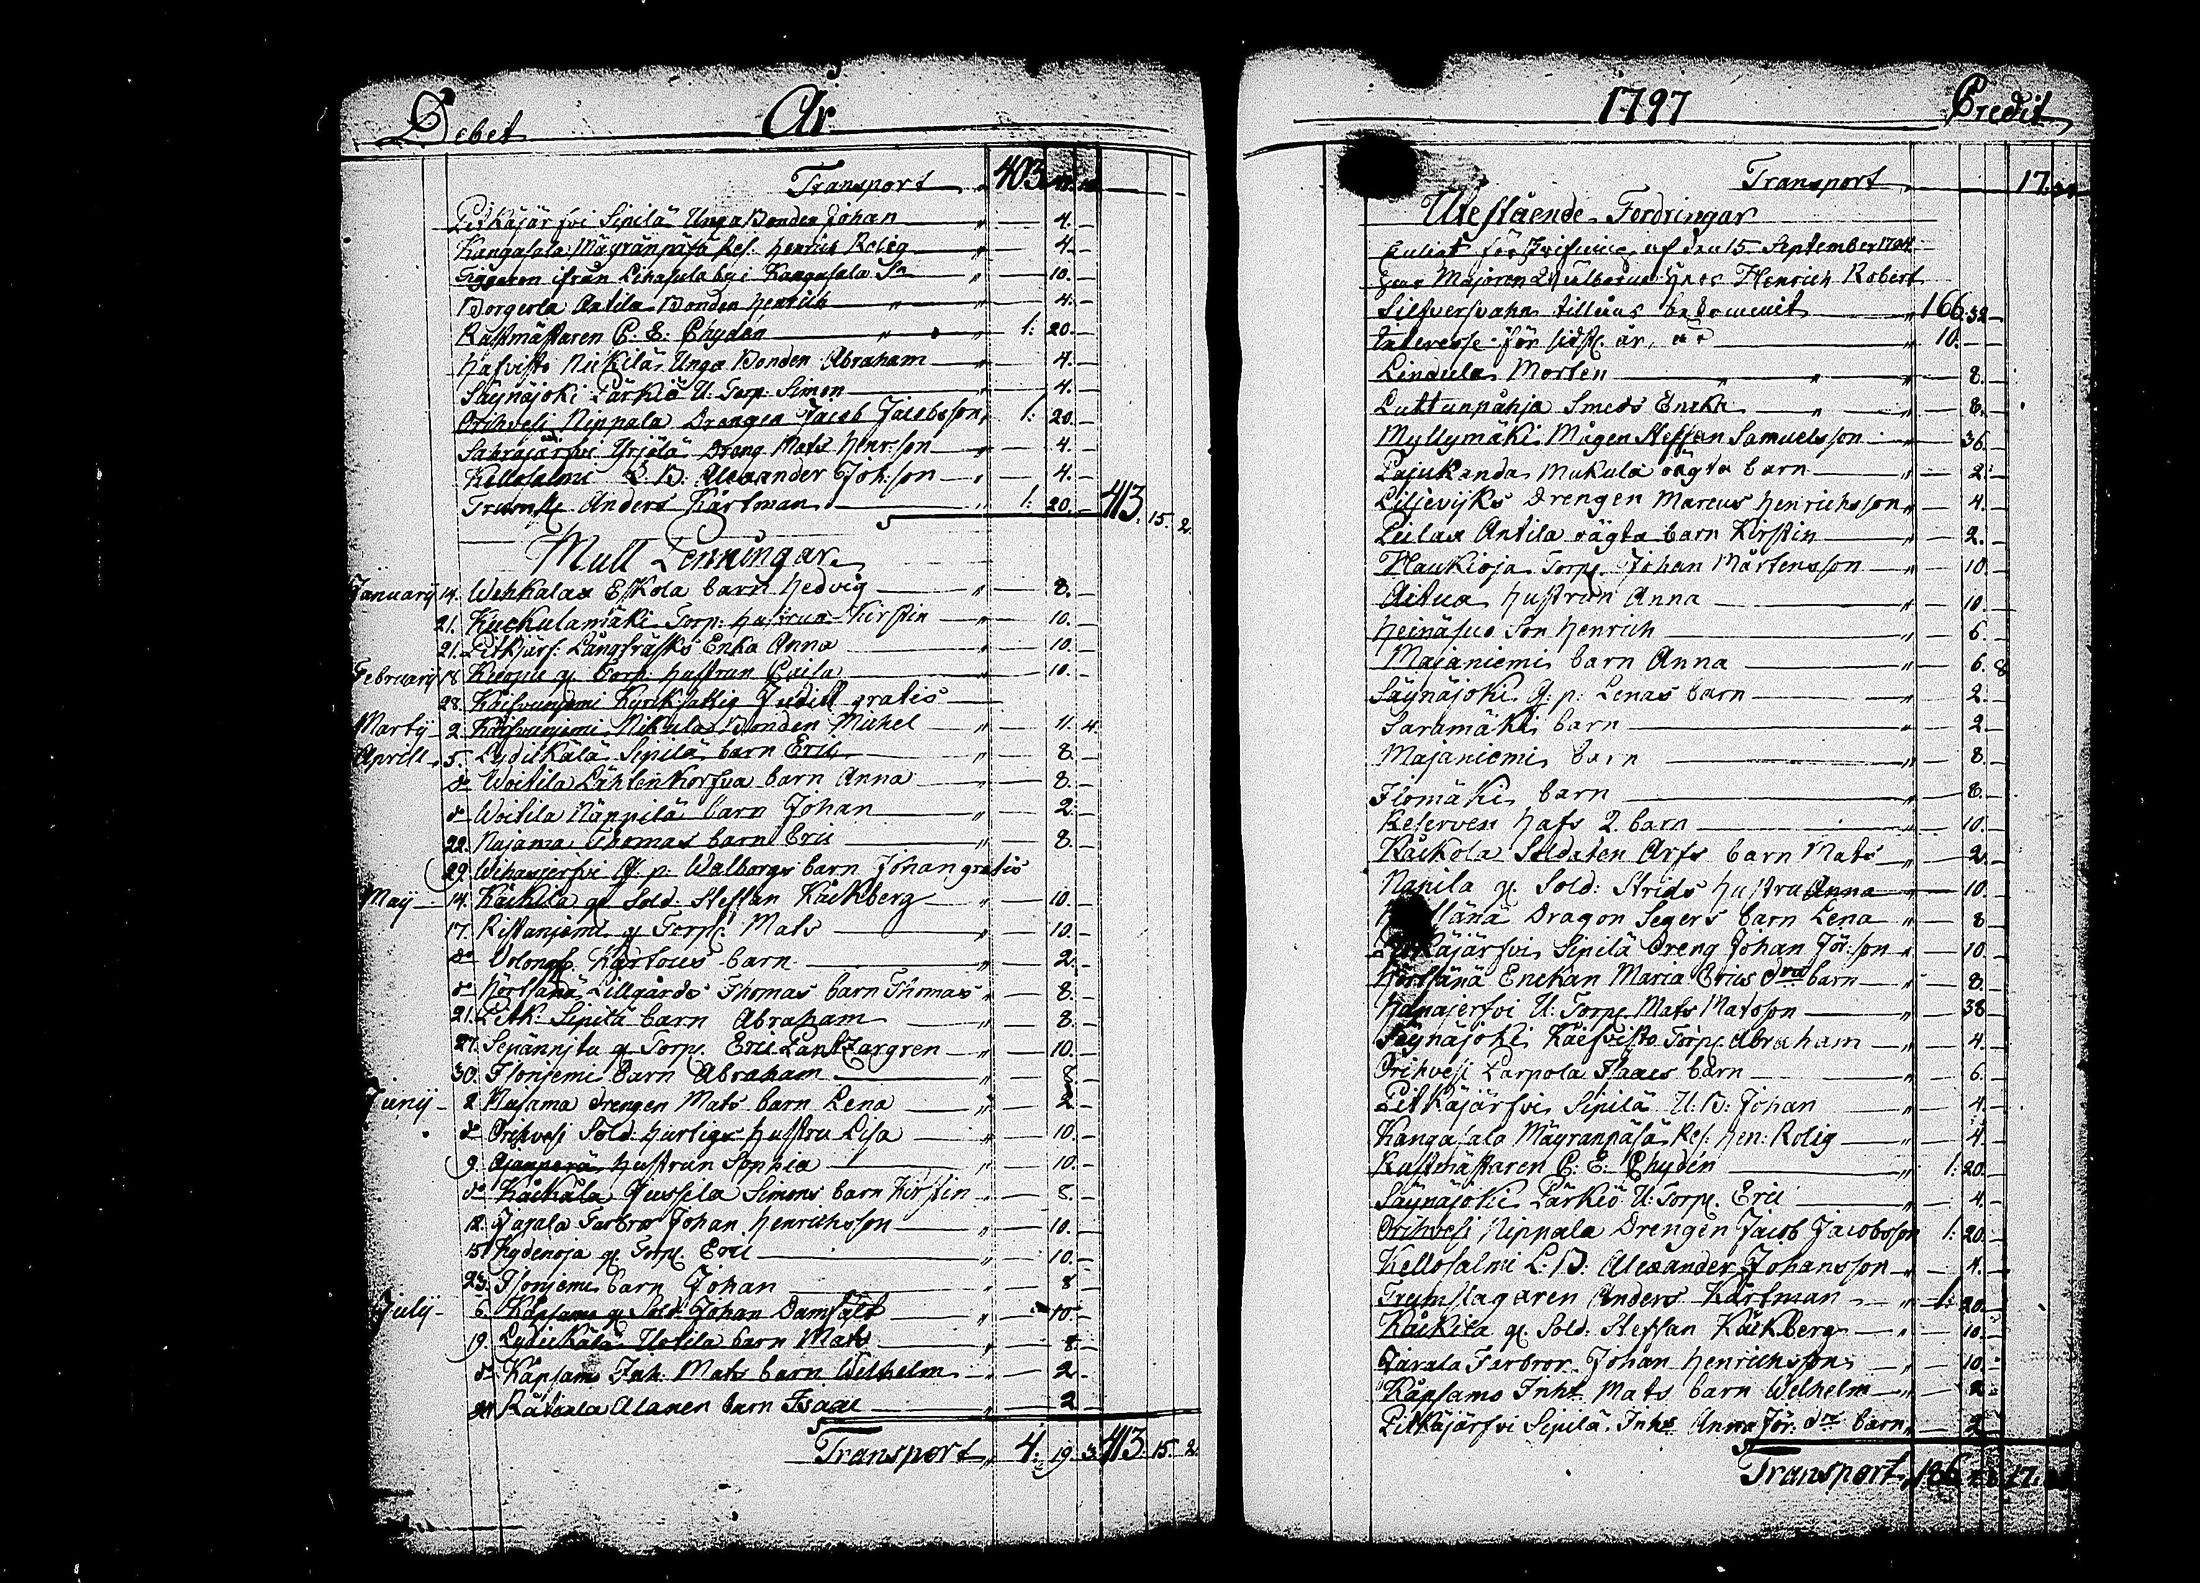 Debet År
Transport 403.
Pitkäjärfvi Sipilä Unga Bonden Johan " 4. -
Kangasala Mäyränpäsä Res. Henrich Rolig " 4. -
Tiggeren ifrån Lihasula by i Kangasala Sn " 10. -
Borgerla Antila Bonden Henrich " 4. -
Rustmästaren C. E. Chydén " 1: 20. -
Hafvisto Nickilä Unga Bonden Abraham " 4. -
Säynäjoki Pärkiö U. Torp. Simon " 4. -
Orihvesi Nippala Drengen Jacob Jacobsson " 1: 20. -
Sahrajärfvi Yrjölä Dreng Mats Henr:son " 4. -
Kellosalmi L. B. Alexander Joh:son " 4. -
Trumsl. Anders Kartman " 1: 20. - 413. 15. 2.
Mull Penningar
January 14. Wehkalax Eskola barn Hedvig " 8. -
21. Kuckulamäki Torp. hustrun Kirstin " 10. -
21. Pitkjärf: Långfräsks Enka Anna " 10. -
February 18. gl. Torp. hustrun Caisa " 10. -
28. Kyrckfattig Judith gratis
Martij 2. Nikula Bonden Michel " 11. 4.
Aprill 5. Lydickälä Sipilä barn Eric " 8. -
do Woitila Lähtenkorfva barn Anna " 8. -
do Woitila Näppilä barn Johan " 2. -
22. Najama Thomas barn Eric " 8. -
29. Wihasjerfvi Q. p. Walborgs barn Johan gratis
Maij 14. Käikilä gl. Sold. Steffan Käickberg " 10. -
17. Ristaniemi gl. Torp. Mats " 10. -
do barn " 2. -
do Hörtsänä Lillgårds Thomas barn Thomas " 8. -
21. Pitk: Sipilä barn Abraham " 8. -
27. gl. Torp. Eric Pantzargren " 10. -
30. Ilonjemi barn Abraham " 8. -
Junij 2. drengen Mats barn Lena " 2. -
do Orihvesi Sold. Hurtigs hustru Lisa " 10. -
9. Ajanperä hustrun Sophia " 10. -
do Käikälä Jussila Simons barn Kirstin " 8. -
12. Jajala Farbror Johan Henrichsson " 10. -
15. Kydenoja gl. Torp. Eric " 10. -
23. Ilonjemi barn Johan " 8 -
Julij 6. gl. Sold. Johan Damfält " 10. -
19. Lydickälä Uotila barn Mats " 8. -
do Käpsamo Inh. Mats barn Welhelm " 2. -
Alanen barn Isaac " 2 -
Transport 4. 19. 3. 413. 15. 2.
1797 Credit
Transport 17.
Utestående Fordringar
Enligt förskrifning af den 15 September
Herr Majoren Henrich Robert
Silfversvahn 166. 32 -
Interesse för sidst. år " 10. -
Lindula Morten " 8. -
Luttunpähja Smeds Enckn " 8. -
Myllymäki Mågen Steffan Samuelsson " 36. -
Pajukanda Mukula oägta barn " 2. -
Liljevijks Drengen Marcus Henrichsson " 4. -
Antila oägta barn Kirstin " 2. -
Haukioja Torp. Johan Mårtensson " 10. -
Aitua hustrun Anna " 10. -
Heinäsuo Son Henrich " 6. -
Majaniemi barn Anna " 6. 8
Säynäjoki Q. p. Lenas barn " 2. -
Saramäki barn " 2. -
Majaniemi barn " 8. -
Ilomäki barn " 8. -
Reserven Hafs 2. barn " 10. -
Käikola Soldaten Arfs barn Mats " 2. -
Napila gl. Sold: Strids hustru Anna " 10. -
Dragon Segers barn Lena " 8 -
Pitkäjärfvi Sipilä Dreng Johan Jör:son " 10. -
Hörtsänä Enckan Maria Erics d:r barn " 8. -
Hanajerfvi U. Torp. Mats Matsson " 38 -
Säynäjoki Käifvisto Torp. Abraham " 4. -
Orihvesi Parpola Isaacs barn " 6. -
Pitkäjärfvi Sipilä U: B: Johan " 4. -
Kangasala Mäyranpäsä Res. Hen: Rolig " 4. -
Rustmästaren C: E: Chydén " 1: 20. -
Säynäjoki Pärkiö U. Torp. Eric " 4. -
Orihvesi Nippala Drengen Jacob Jacobsson 1: 20. -
Kellosalmi L: B: Alexander Johansson " 4. -
Trumslagaren Anders Kartman " 1: 20. -
Käikilä gl. Sold: Steffan Käickberg " 10. -
Jävala Farbror Johan Henrichsson " 10. -
Käpsamo Inht Mats barn Welhelm " 2 -
Pitkäjärfvi Sipilä Inhs Anna Jör. d:r barn " 2 -
Transport 186 17.